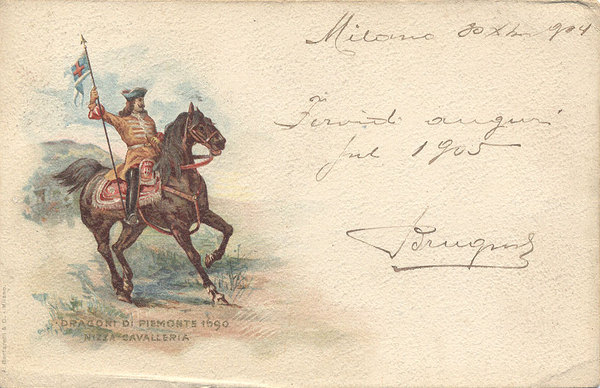 Milano 30 XII 1904
Fervidi auguri
pel 1905
DRAGONI DI PIEMONTE 1690
NIZZA CAVALLERIA